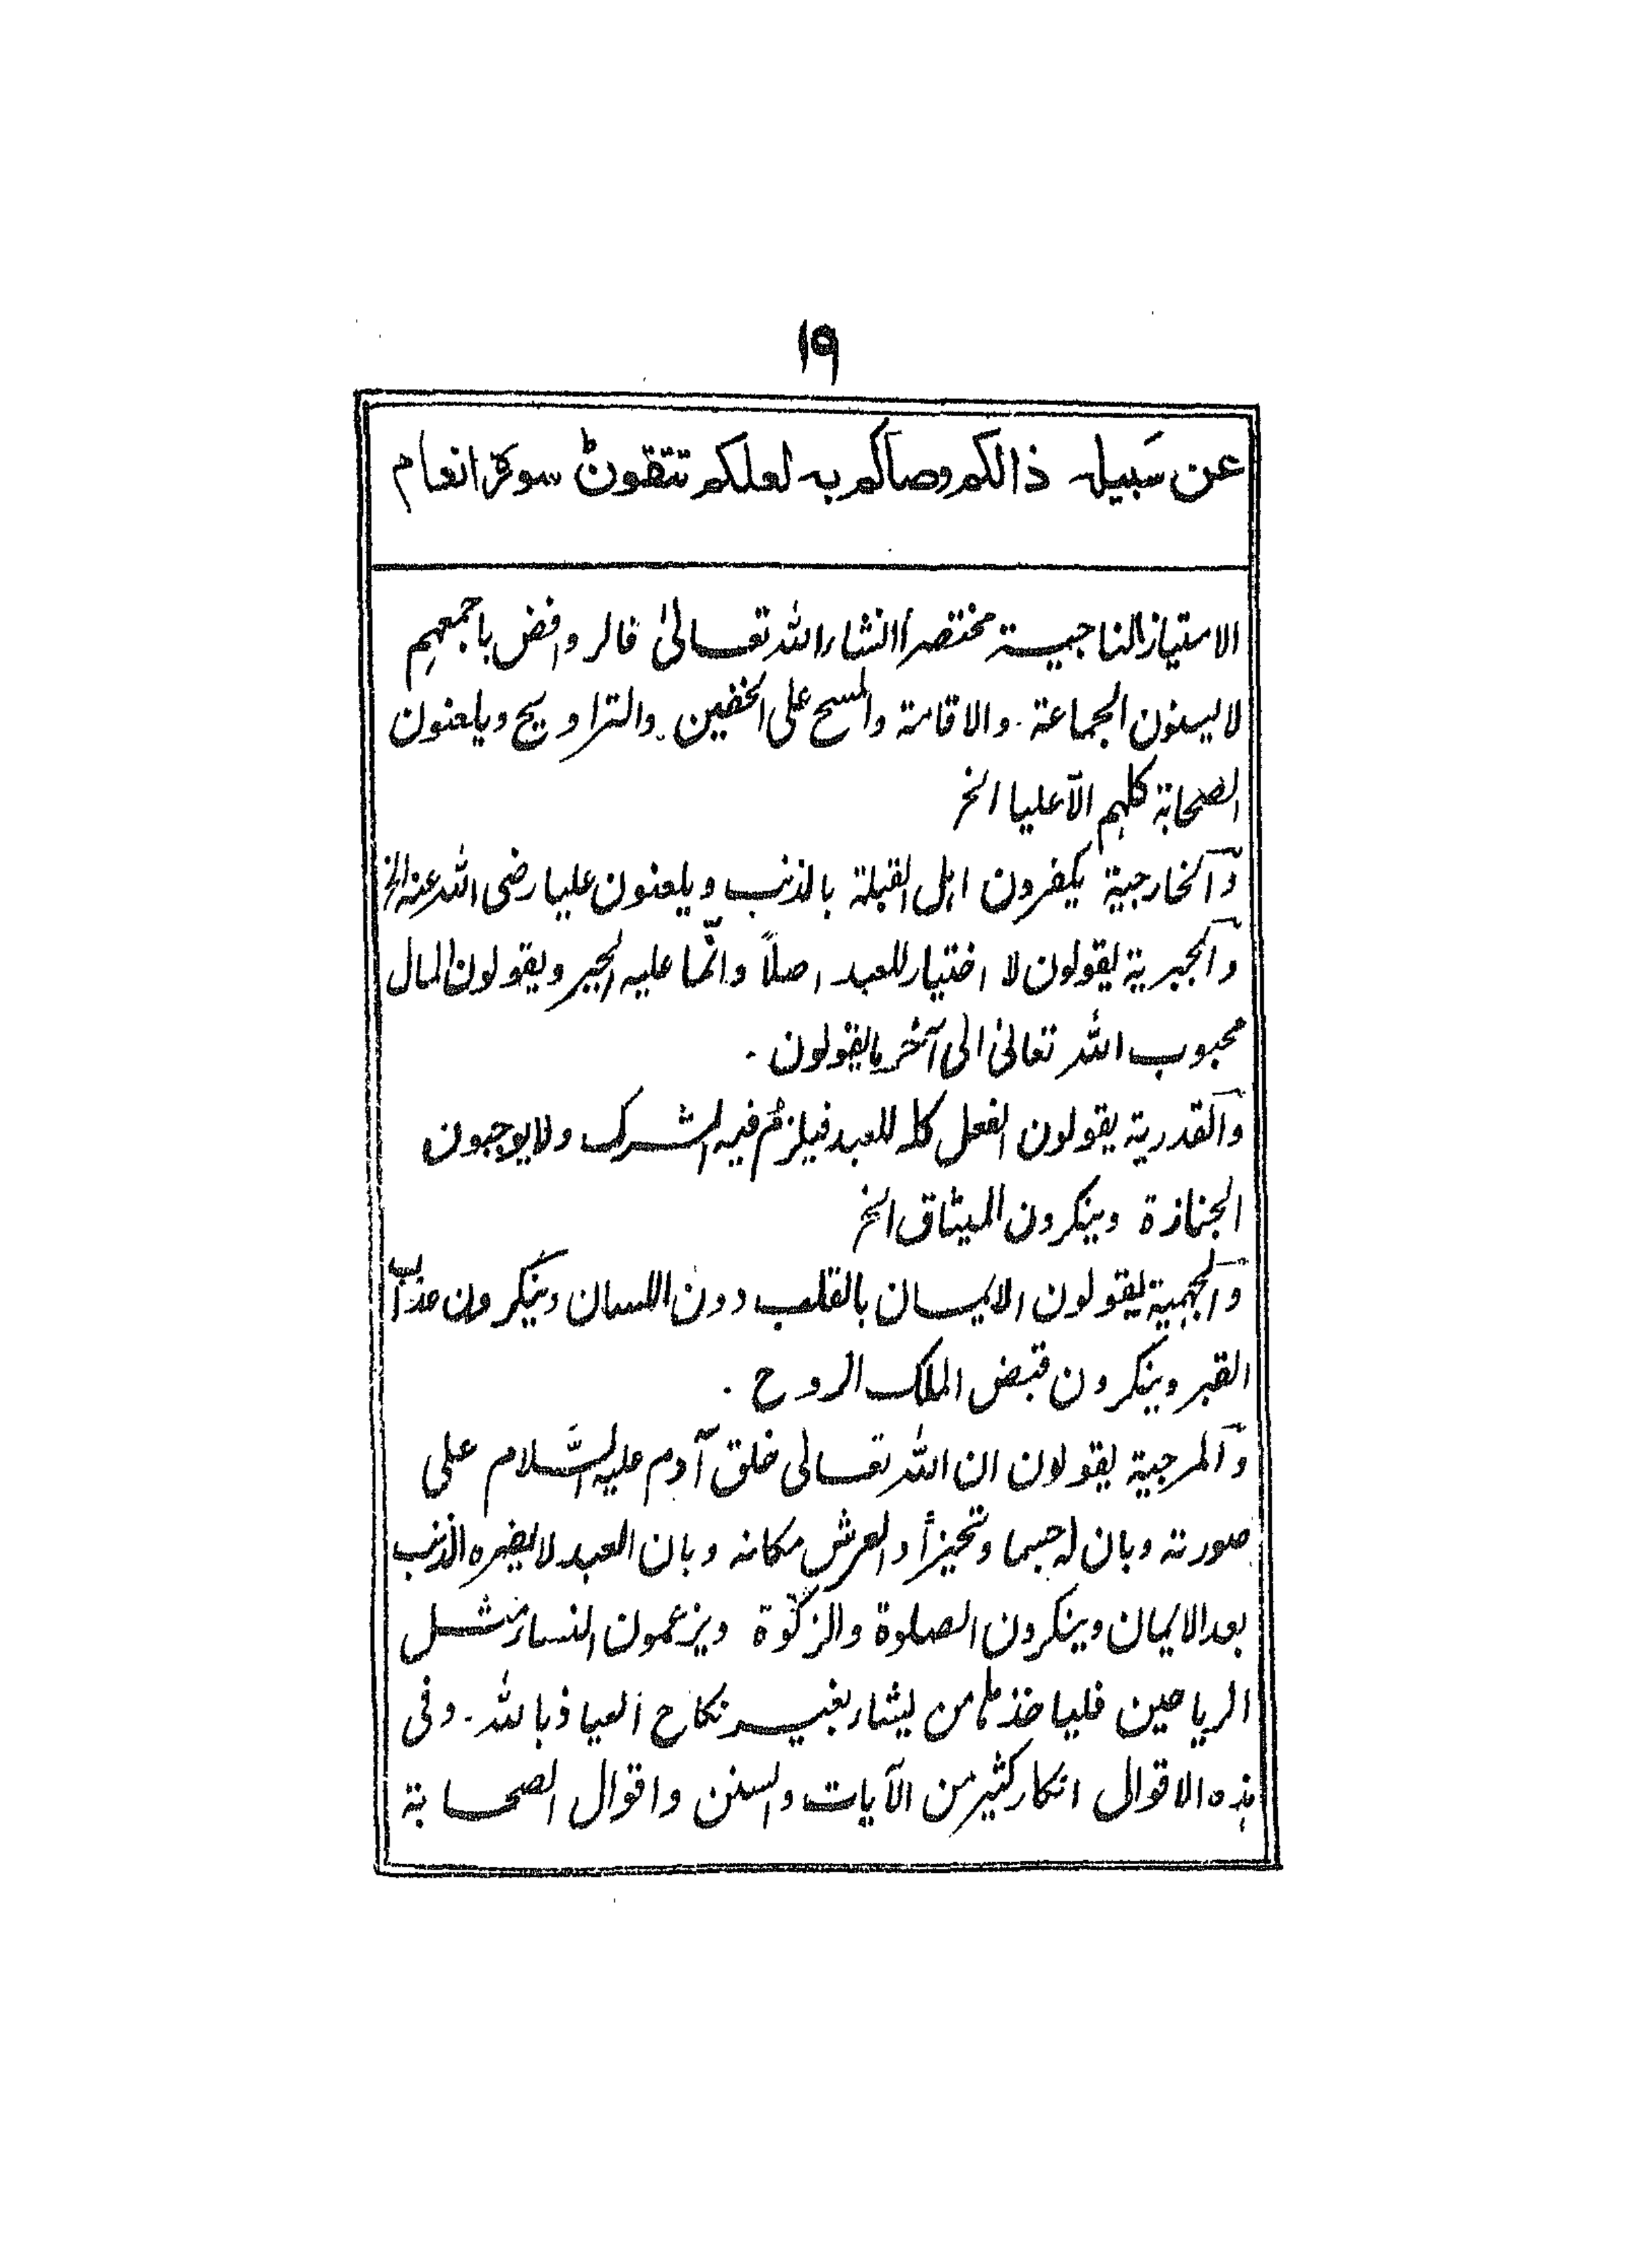 ۱۹
عن سَبیله ذالکم وصاکم به لعلکم تتقون سورة انعام
الامتیاز الناجیة مختصراً انشاء الله تعالیٰ فالروافض باجمعهم
لا یسنون الجماعة . والاقامة والمسح علی الخفین . والتراویح ویلعنون
الصحابة کلهم الّا علیا الخ
وَالخارجیة یکفرون اهل القبلة بالذنب ویلعنون علیا رضی الله عنه الخ
وَالجبریة یقولون لا اختیار للعبد اصلاً وانّما علیه الجبر ویقولون المال
محبوب الله تعالیٰ الی آخر ما یقولون .
وَالقدریة یقولون الفعل کله للعبد فیلزم فیه الشرک ولا یوجبون
الجنازة وینکرون المیثاق الخ
وَالجهمیة یقولون الایمان بالقلب دون اللسان وینکرون عذاب
القبر وینکرون قبض الملک الروح .
وَالمرجیة یقولون ان الله تعالی خلق آدم علیه السَّلام علی
صورته وبان له جسما وتحیزاً والعرش مکانه وبان العبد لا یضره الذنب
بعد الایمان وینکرون الصلوة والزکٰوة ویزعمون النساء مثل
الریاحین فلیاخذها من یشاء بغیر نکاح العیاذ بالله . وفی
هذه الاقوال انکار کثیر من الآیات والسنن واقوال الصحابة